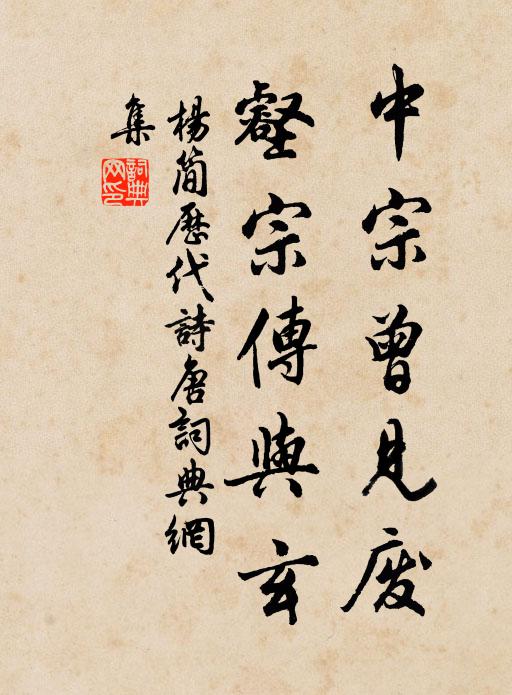 中宗曾見废
壑宗傳與玄
楊简歷代詩唐詞典網
集
詞典网印